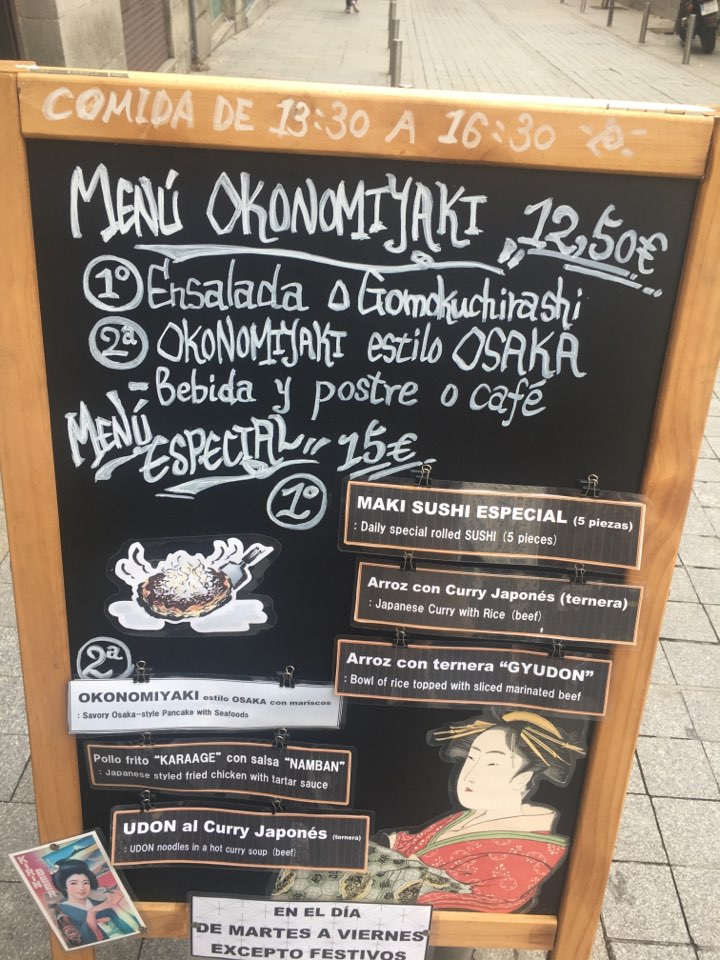 COMIDA DE 13:30 A 16:30
MENÚ OKONOMIYAKI 12,50€
1º Ensalada o Gomokuchirashi
2ª OKONOMIYAKI estilo OSAKA
- Bebida y postre o café
MENÚ ESPECIAL 15€
1º
MAKI SUSHI ESPECIAL (5 piezas)
: Daily special rolled SUSHI (5 pieces)
Arroz con Curry Japonés (ternera)
: Japanese Curry with Rice (beef)
Arroz con ternera "GYUDON"
: Bowl of rice topped with sliced marinated beef
2ª
OKONOMIYAKI estilo OSAKA con mariscos
: Savory Osaka-style Pancake with Seafoods
Pollo frito "KARAAGE" con salsa "NAMBAN"
: Japanese styled fried chicken with tartar sauce
UDON al Curry Japonés (ternera)
: UDON noodles in a hot curry soup (beef)
KIRIN
BEER
EN EL DÍA
DE MARTES A VIERNES
EXCEPTO FESTIVOS